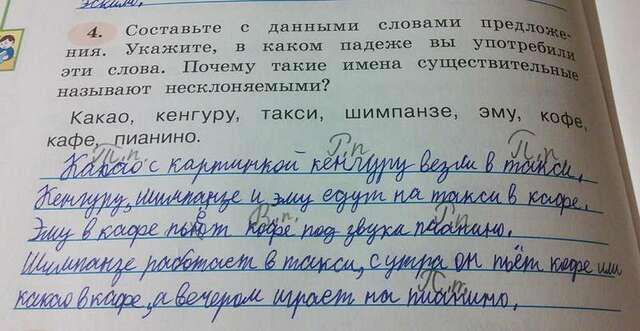 эскимо,
4. Составьте с данными словами предложе-
ния. Укажите, в каком падеже вы употребили
эти слова. Почему такие имена существительные
называют несклоняемыми?
Какао, кенгуру, такси, шимпанзе, эму, кофе,
кафе, пианино.
П.п Р.п П.п
Какао с картинкой кенгуру везли в такси.
Кенгуру, шимпанзе и эму едут на такси в кафе.
В.п.
Эму в кафе пьют кофе под звуки пианино.
Шимпанзе работает в такси, с утра он пьёт кофе или
П.п.
какао в кафе, а вечером играет на пианино.